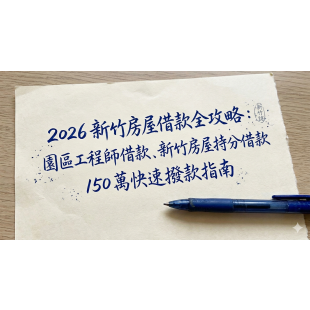 2026 新竹房屋借款全攻略：
園區工程師借款、新竹房屋持分借款
150 萬快速撥款指南